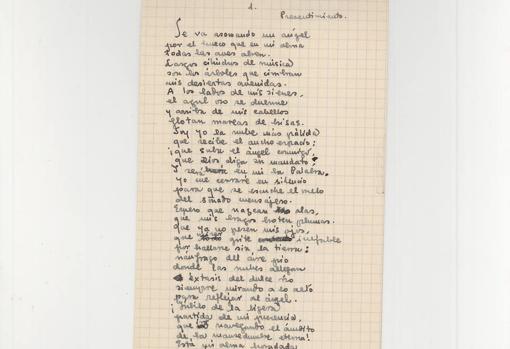 1.
Presentimiento.
Se va asomando un ángel
por el hueco que en mi alma
todas las aves abren.
Largos cilindros de música
son los árboles que cimbran
mis desiertas avenidas.
A los lados de mis sienes,
el azul oso se duerme
y arriba de mis cabellos
flotan mareas de brisas.
Soy yo la nube más pálida
que recibe el ancho espacio:
¡que suba el ángel conmigo,
que Dios diga su mandato!
Y será en mi la Palabra.
Yo me cerraré en silencio
para que se escuche el
del mensajero.
Espero que nazcan alas,
que mis brazos broten plumas.
que ya no pesen mis ojos,
que grite inefable
por hallarse sin la tierra:
naufrago del aire pío
donde las nubes
éxtasis del dulce
siempre mirando a lo alto
para reflejar al ángel.
¡Júbilo de la ligera
partida de mi presencia,
que navegando el ámbito
de la mansedumbre eterna!
Está mi alma